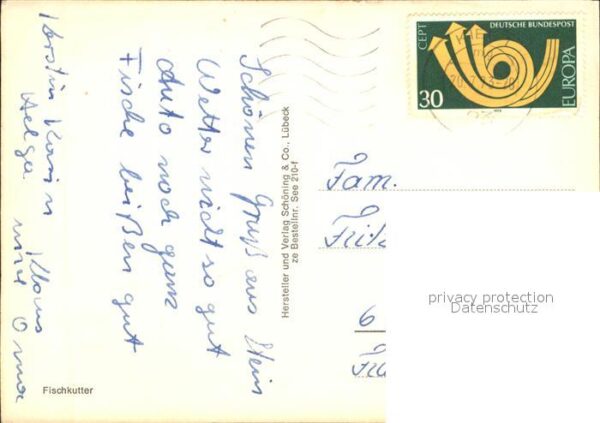 Schönen Gruß aus Stein
Wetter nicht so gut
Auto noch ganz
Fische beißen gut
Kerstin Karin Klaus
Helga und Oma
Fischkutter
Hersteller und Verlag Schöning & Co., Lübeck
ze Bestellnr. See 210-f
CEPT
DEUTSCHE BUNDESPOST
30
EUROPA
Fam.
Fritz
6
privacy protection
Datenschutz